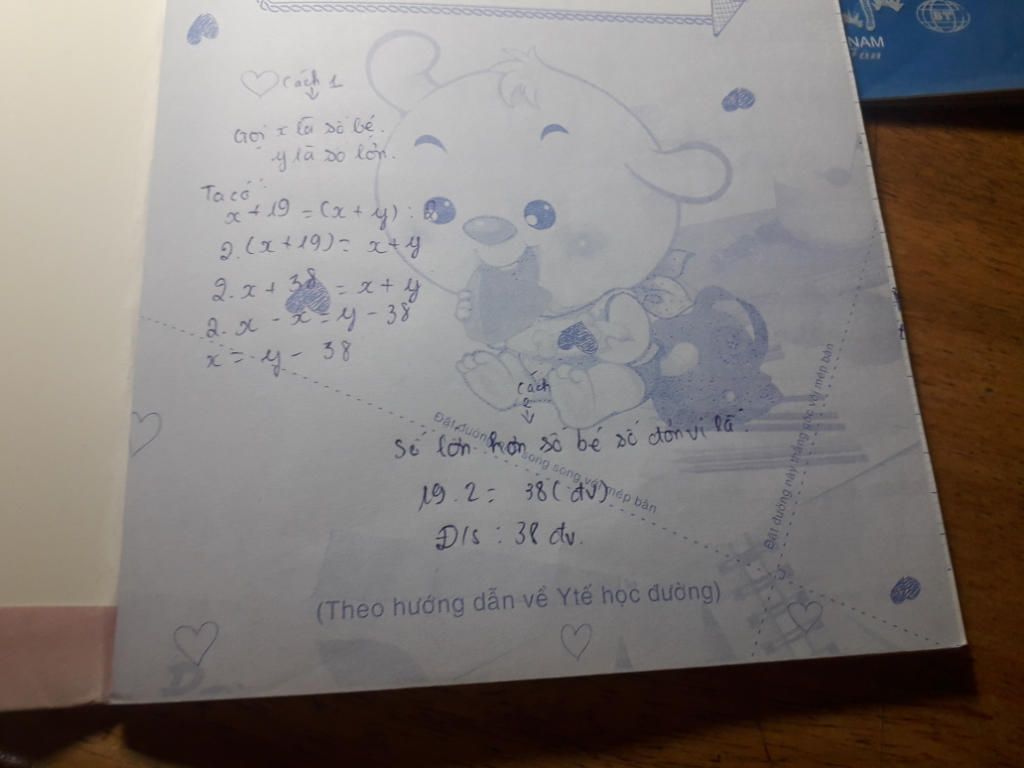 NAM
BT
Cách 1
Gọi x là số bé.
y là số lớn.
Ta có
x + 19 = (x + y) : 2
2. (x + 19) = x + y
2. x + 38 = x + y
2. x - x = y - 38
x = y - 38
Cách
2
Số lớn hơn số bé số đơn vị là :
19 . 2 = 38 (đv)
Đ/s : 38 đv.
Đặt đường song song với mép bàn
Đặt đường này thẳng góc với mép bàn
(Theo hướng dẫn về Y tế học đường)